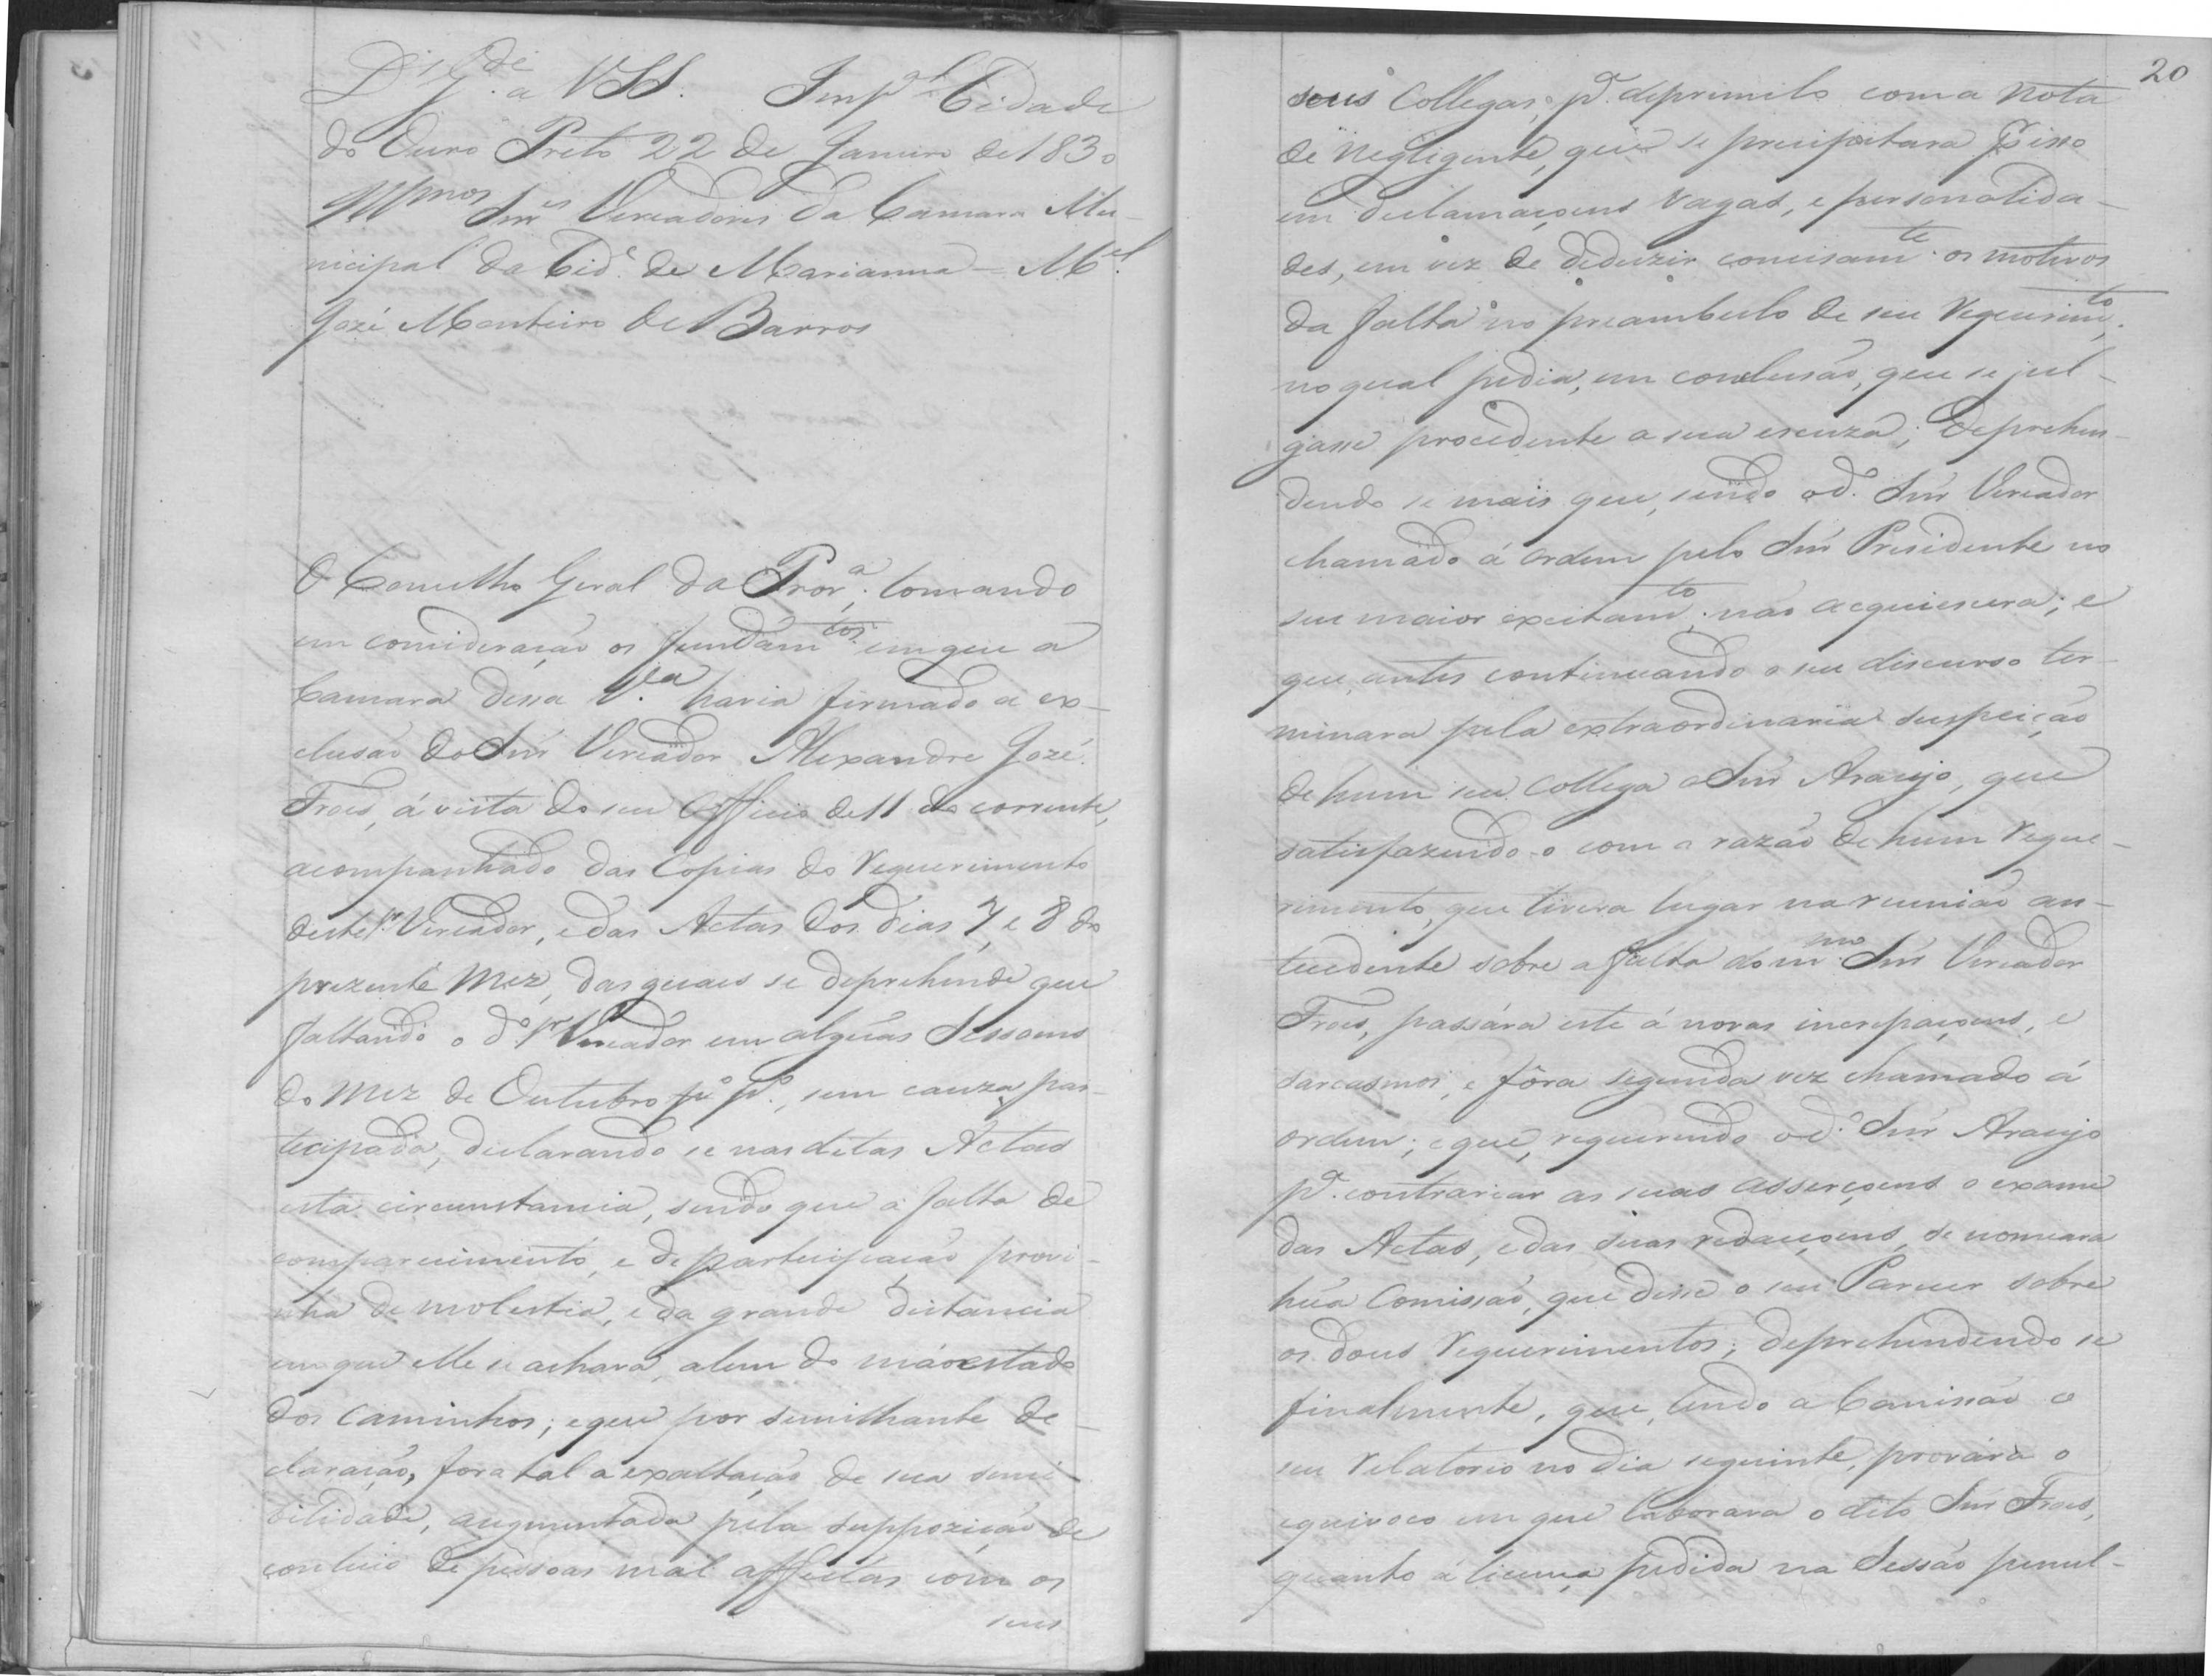 D.s G.de a VSS. Imp.al Cidade
do Ouro Preto 22 de Janeiro de 1830
Ill.mos Snr.es Vereadores da Camara Mu-
nicipal da Cid.e de Marianna = M.el
Jozé Monteiro de Barros
O Conselho Geral da Prov.a, tomando
em consideração os fundam.tos em que a
Camara dessa V.la havia firmado a ex-
clusão do Snr Vereador Alexandre Jozé
Froes, á vista do seu Officio de 11 do corrente,
acompanhado das Copias do Requerimento
deste Sr. Vereador, e das Actas dos dias 7, e 8 do
prezente Mez, das quaes se deprehende que
faltando o d.o Sr Vereador em algũas Sessoens
do Mez de Outubro p.o p.o, sem cauza par-
tecipada, declarando se nas ditas Actas
esta circunstancia, sendo que a falta de
comparecimento, e de partecipação provi-
nha de molestia, e da grande distancia
em que elle se achava, alem do máo estado
dos Caminhos; e que por similhante de-
claração, fora tal a exaltação de sua sensi-
bilidade, augmentada pela suppozição de
conluio de pessoas mal affectas com os
seus
20
seus Collegas, p.a deprimilo com a Nota
de Negligente, que se precipitara p.r isso
em declamaçoens vagas, e personalida-
des, em vez de deduzir concisam.te os motivos
da falta no preambulo de seu Requerim.to,
no qual pedia, em conclusão, que se jul-
gasse procedente a sua escuza; deprehen-
dendo se mais que, sendo o d.o Snr Vereador
chamado á ordem pelo Snr Presidente no
seu maior excitam.to, não acquiescera; e
que, antes continuando o seu discurso ter-
minara pela extraordinaria suspeição
de hum seu Collega o Snr Araujo, que
satisfazendo-o com a razão de hum Reque-
rimento, que tivera lugar na reunião an-
tecedente sobre a falta do m.mo Snr Vereador
Froes, passára este á novas increpaçoens, e
sarcasmos, e fôra segunda vez chamado á
ordem; e que, requerendo o d.o Snr Araujo
p.a contrariar as suas asserçoens o exame
das Actas, e das suas redacçoens, se nomeara
hũa Comissão, que désse o seu Parecer sobre
os dous Requerimentos; deprehendendo se
finalmente, que, lendo a Comissão o
seu Relatorio no dia seguinte, provára o
equivoco em que laborava o dito Snr Froes,
quanto á licença pedida na Sessão penul-